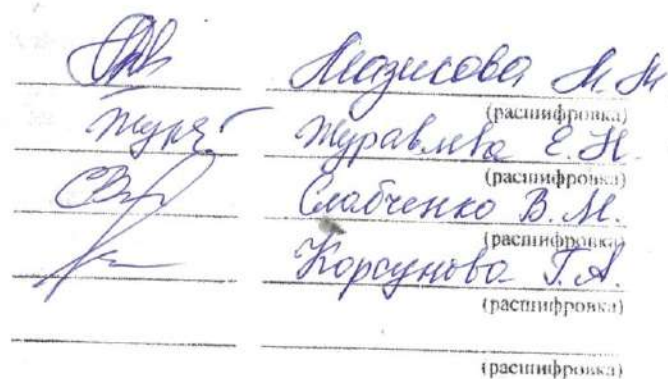 Мазисова М. М
(расшифровка)
Журавлева Е. Н.
(расшифровка)
Слабченко В. М.
(расшифровка)
Корсунова Т. А.
(расшифровка)
(расшифровка)